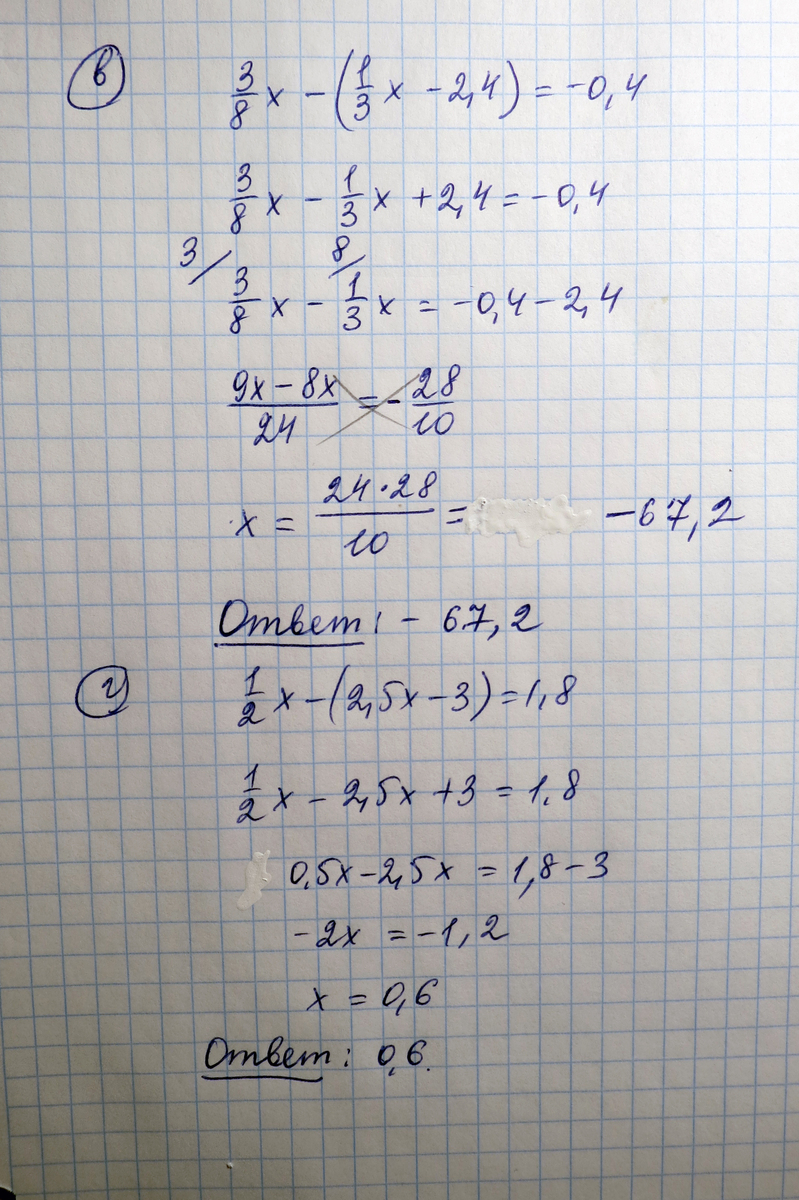 в) 3/8 x - (1/3 x - 2,4) = -0,4
3/8 x - 1/3 x + 2,4 = -0,4
3/ 8/
3/8 x - 1/3 x = -0,4 - 2,4
(9x - 8x)/24 = - 28/10
x = (24 · 28)/10 = -67,2
Ответ: - 67,2
г) 1/2 x - (2,5x - 3) = 1,8
1/2 x - 2,5x + 3 = 1.8
0,5x - 2,5x = 1,8 - 3
-2x = -1,2
x = 0,6
Ответ: 0,6.